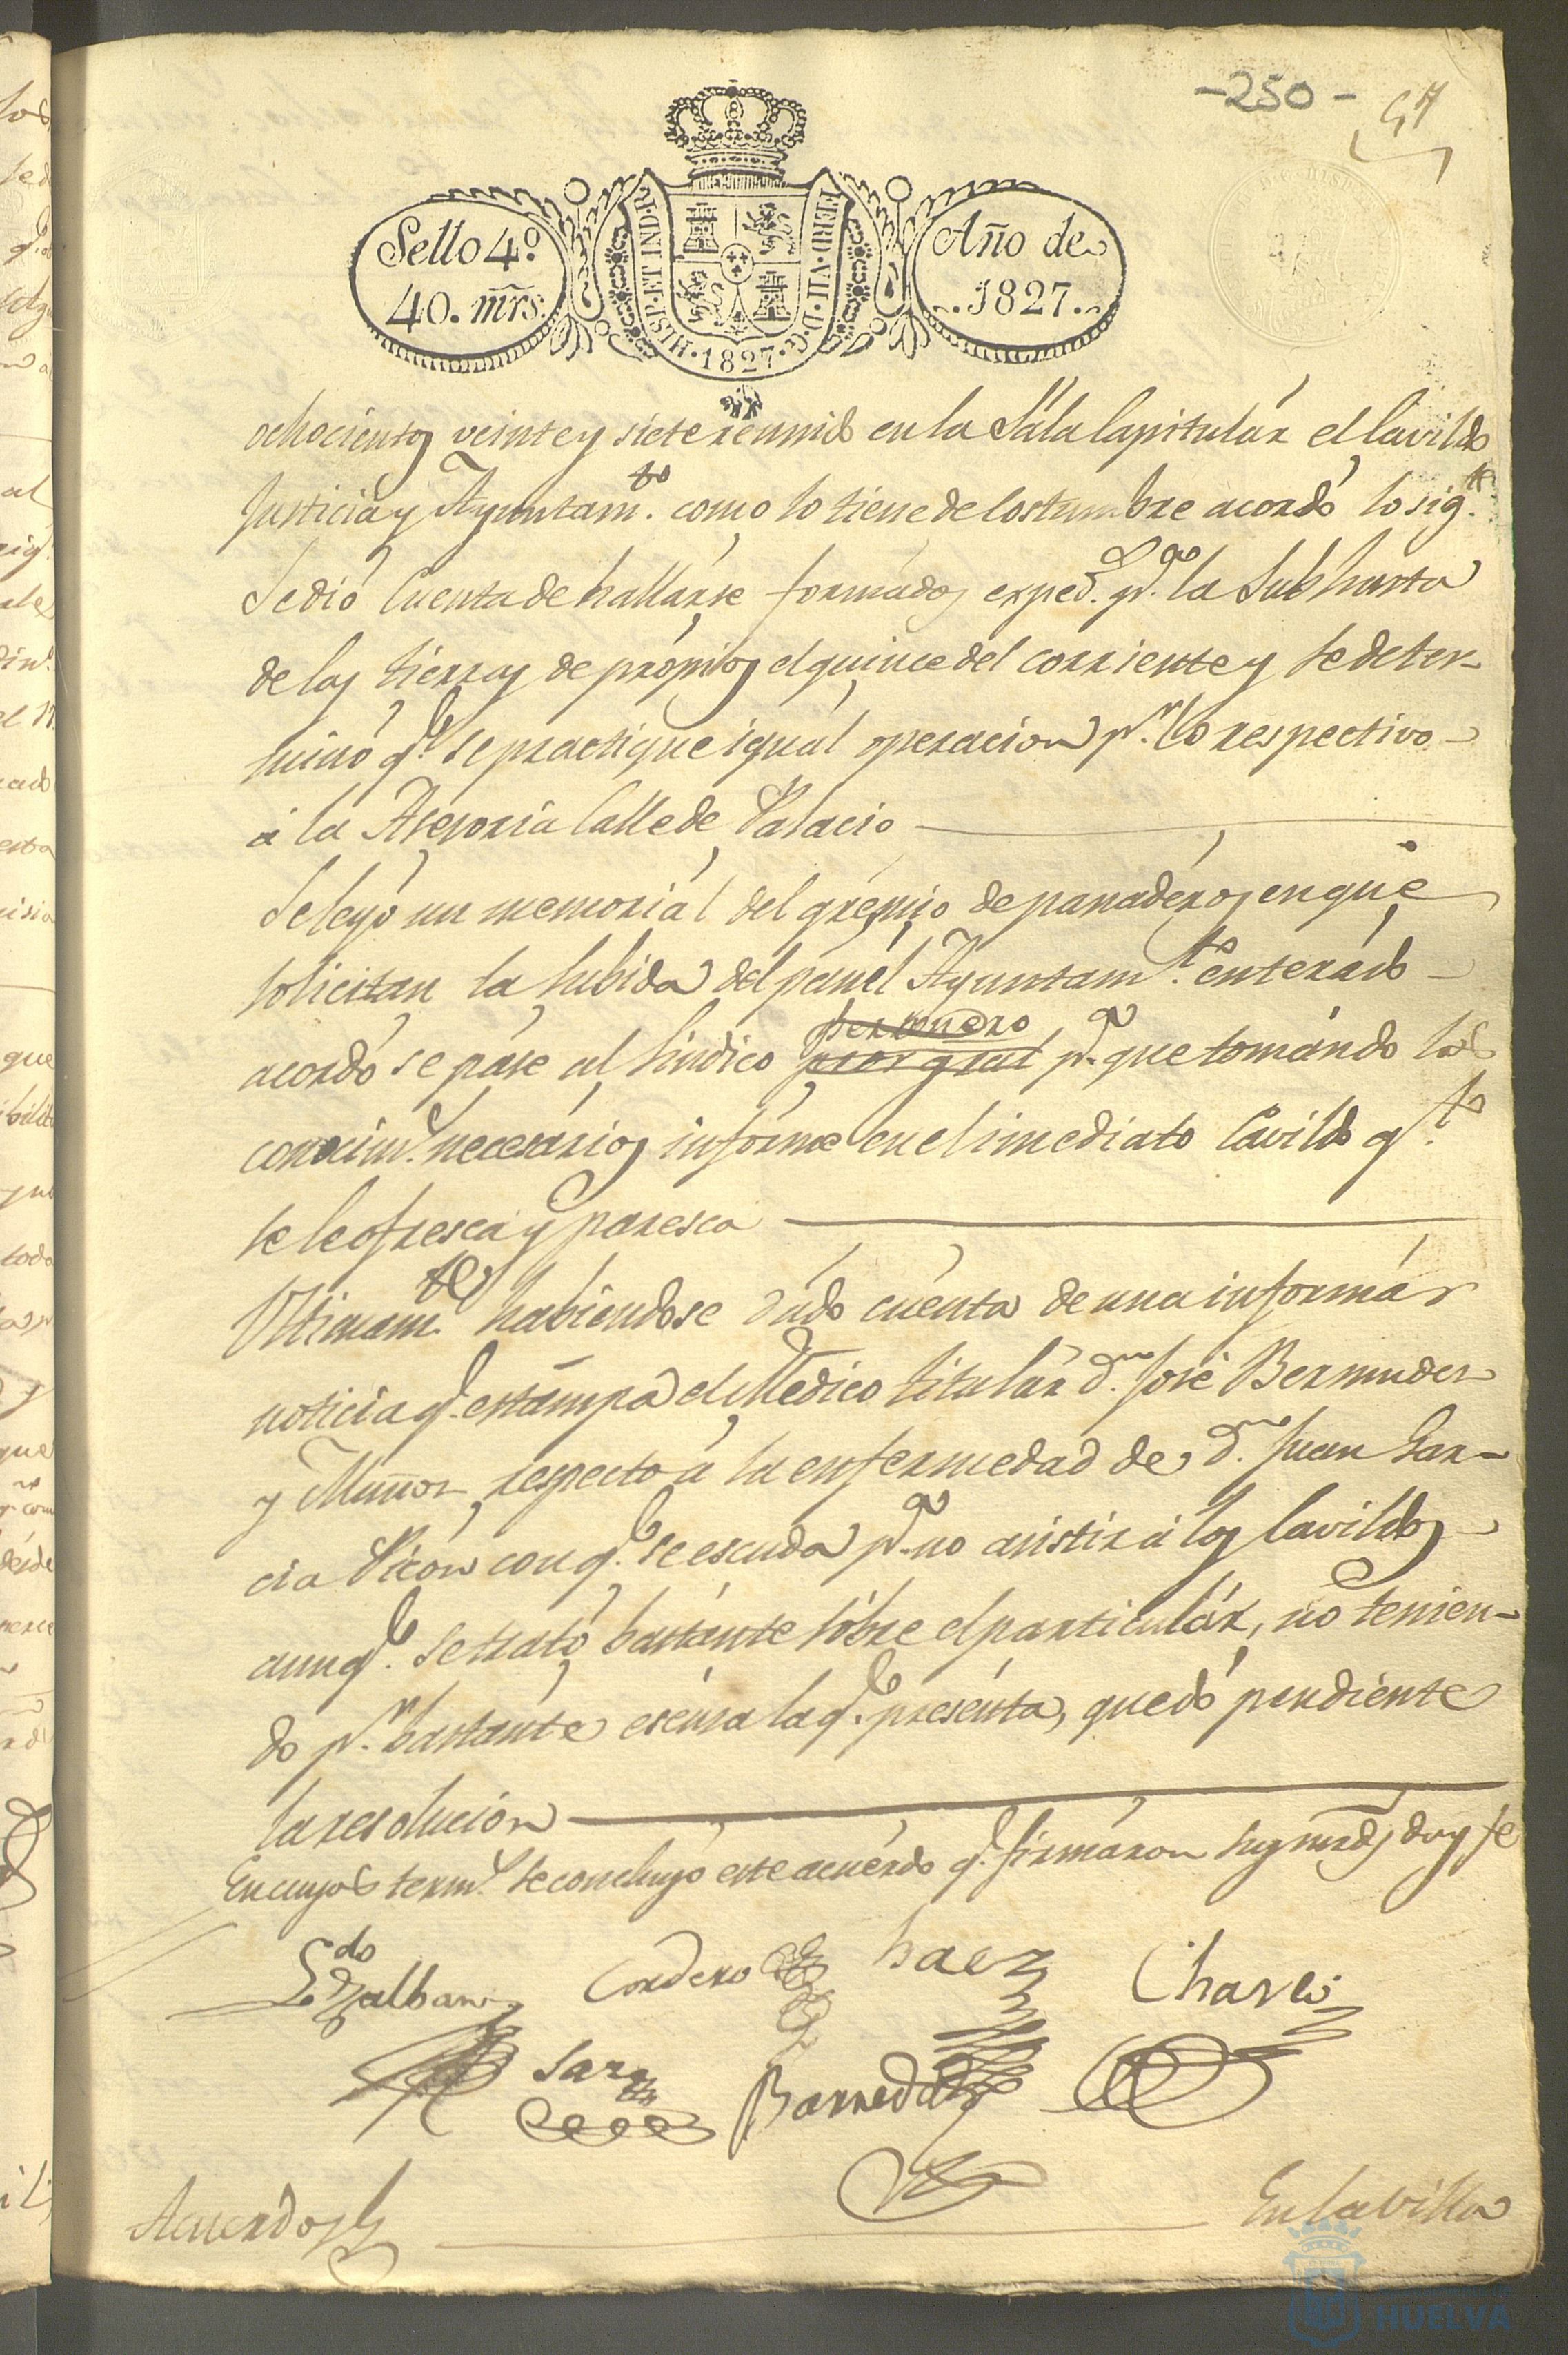 -250-
57
Sello 4º
40. mrs.
FERD·VII·D·G·
HISP·ET·IND·R·
·1827·
Año de
1827.
ochocientos veinte y siete reunido en la Sala Capitular el Cavildo
Justicia y Ayuntamto. como lo tiene de Costumbre acordó lo sigte.
Se dió Cuenta de hallarse formados exped.s pa. la Subhasta
de las tierras de propios el quince del corriente y se deter-
minó qe. se practique igual operacion pr. lo respectivo
á la Asesoria Calle de Palacio
Se leyó un memorial del gremio de panaderos en que
solicitan la subida del pan el Ayuntamto. enterado
acordó se pase al Sindico personero pa. que tomando los
conocims. necesarios informe en el imediato Cavildo qto.
se le ofresca y paresca
Ultimamte. habiendose dado cuenta de una informár
noticia qe. estampa el Medico titular Dn. José Bermudez
y Muñoz respecto a la enfermedad de Dn. Juan Gar-
cia Picon con qe. se escuda pa. no asistir á los Cavildos
aunqe. se trató bastante sobre el particular, no tenien-
do pr. bastante escusa la qe. presenta, quedó pendiente
la resolucion
En cuyos terms. se concluyó este acuerdo qe. firmaron sus mrds doy fe
Ldo. Zalbani
Cordero
Saez
Charles
Sarz
Barreda
Acuerdo
En la Villa
HUELVA